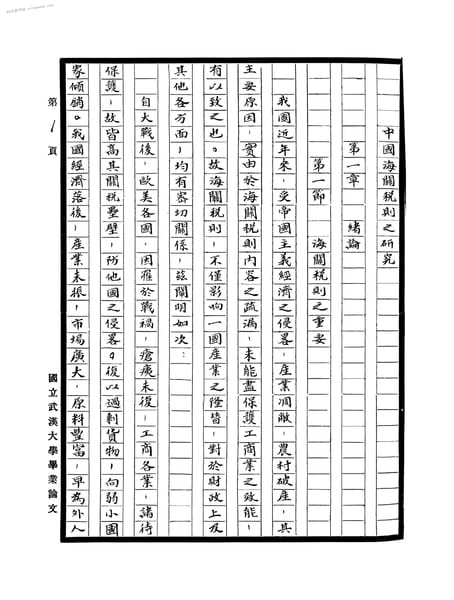 中國海關税則之研究
第一章 緒論
第一節 海關税則之重要
我國近年來，受帝國主義經濟之侵畧，產業凋敝，農村破產，其
主要原因，實由於海關税則内容之疏漏，未能盡保護工商業之效能，
有以致之也。故海關税則，不僅影响一國產業之隆替，對於財政上及
其他各方面，均有密切關係，茲闡明如次：
自大戰後，歐美各國，因罹於戰禍，瘡痍未復，工商各業，諸待
保護，故皆高其關税壘壁，防他國之侵畧。復以過剩貨物，向弱小國
家傾銷。我國經濟落後，產業未振，市場廣大，原料豐富，早為外人
第1頁
國立武漢大學畢業論文